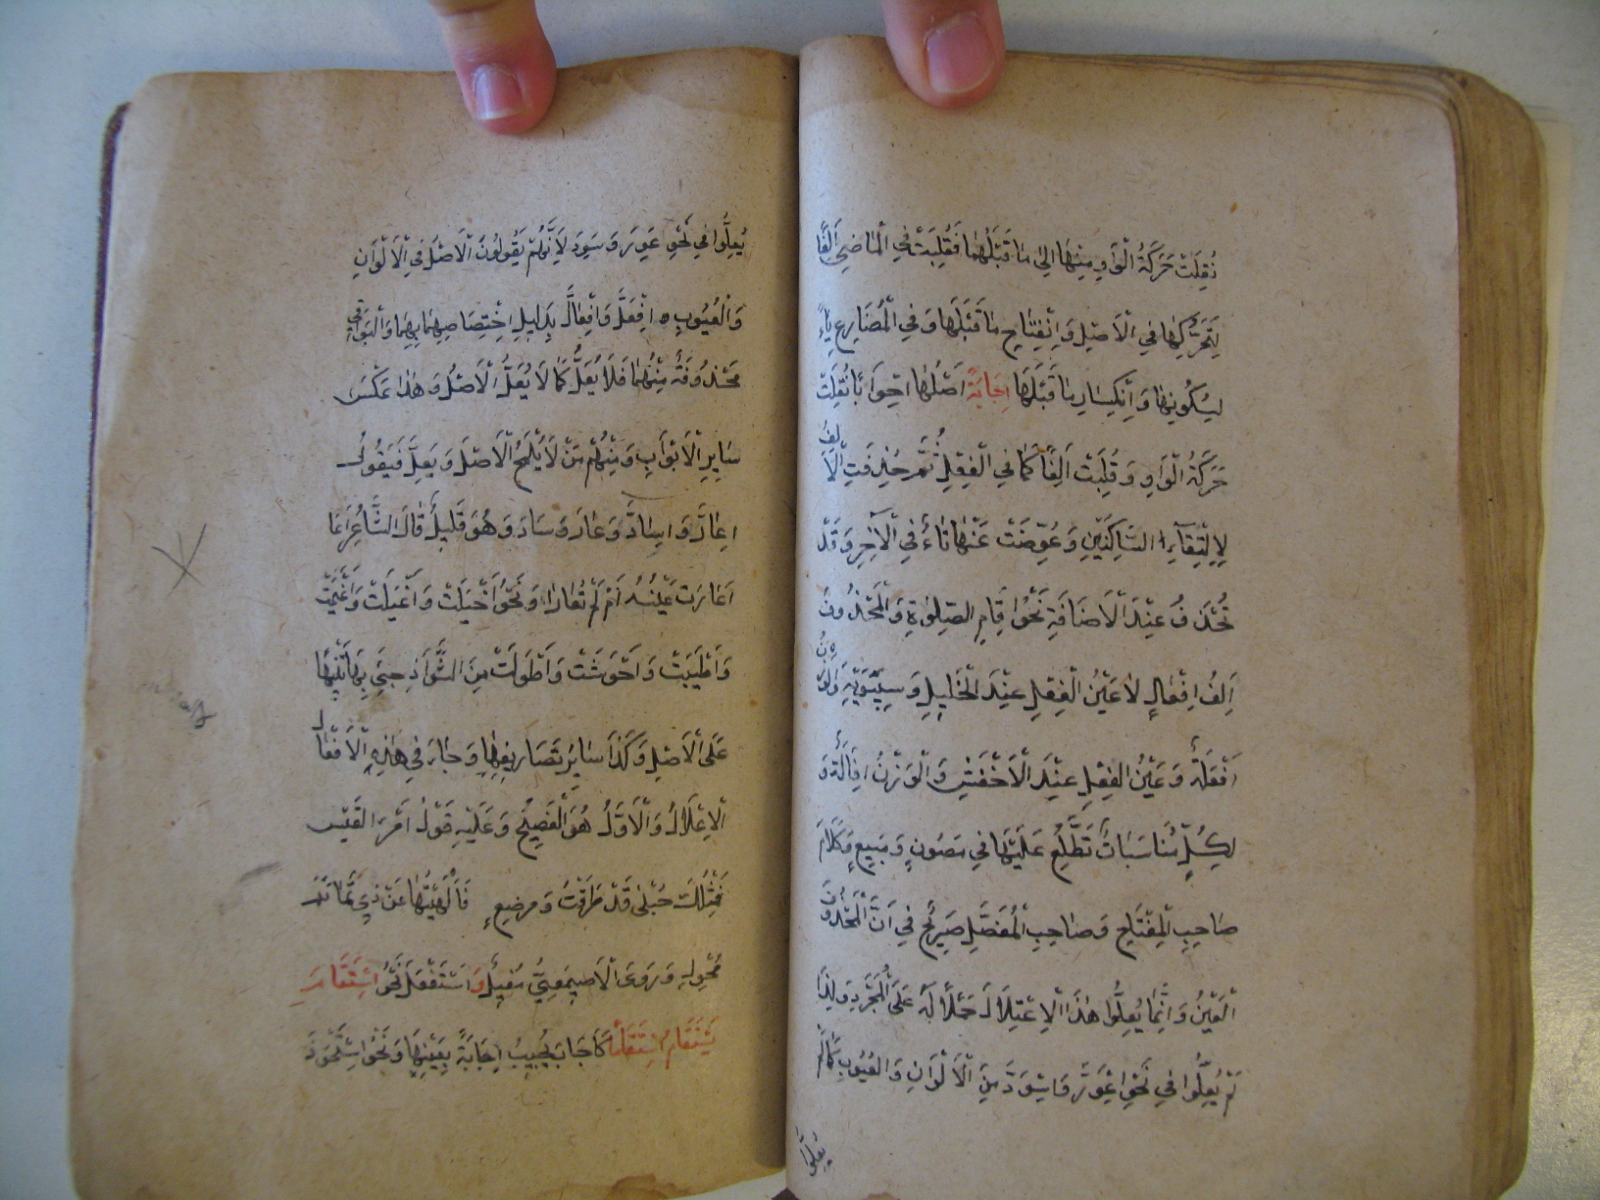 نُقِلَتْ حَرَكَةُ الْوَاوِ مِنْهَا اِلىٰ مَا قَبْلَهَا فَقُلِبَتْ فِي الْمَاضِي اَلِفًا
لِتَحَرُّكِهَا فِي الْاَصْلِ وَاِنْفِتَاحِ مَا قَبْلَهَا وَفِي الْمُضَارِعِ يَاءً
لِسُكُونِهَا وَاِنْكِسَارِ مَا قَبْلَهَا اِجَابَةً اَصْلُهَا اِجْوَابًا نُقِلَتْ
حَرَكَةُ الْوَاوِ وَقُلِبَتْ اَلِفًا كَمَا فِي الْفِعْلِ ثُمَّ حُذِفَتِ الْاَلِفُ
لِاِلْتِقَاءِ السَّاكِنَيْنِ وَعُوِّضَتْ عَنْهَا تَاءٌ فِي الْاٰخِرِ وَقَدْ
تُحْذَفُ عِنْدَ الْاِضَافَةِ نَحْوُ اِقَامِ الصَّلٰوةِ وَالْمَحْذُوفُ
اَلِفُ اِفْعَالٍ لَا عَيْنُ الْفِعْلِ عِنْدَ الْخَلِيلِ وَسِيبَوَيْهِ وَالْوَزْنُ
اِفْعَلَةٌ وَعَيْنُ الْفِعْلِ عِنْدَ الْاَخْفَشِ وَالْوَزْنُ اِفَالَةٌ وَ
لِكُلٍّ مُنَاسَبَاتٌ تَطَّلِعُ عَلَيْهَا فِي مَصُونٍ وَمَبِيعٍ وَكَلَامُ
صَاحِبِ الْمِفْتَاحِ وَصَاحِبِ الْمُفَصَّلِ صَرِيحٌ فِي اَنَّ الْمَحْذُوفَ
الْعَيْنُ وَاِنَّمَا يُعِلُّوا هٰذَا الْاِعْتِلَالَ حَمْلًا لَهُ عَلَى الْمُجَرَّدِ وَلِذَا
لَمْ يُعِلُّوا فِي نَحْوِ اِعْوَرَّ وَاسْوَدَّ مِنَ الْاَلْوَانِ وَالْعُيُوبِ كَمَا لَمْ
يُعِلُّوا
يُعِلُّوا فِي نَحْوِ عَوِرَ وَسَوِدَ لِاَنَّهُمْ يَقُولُونَ الْاَصْلُ فِي الْاَلْوَانِ
وَالْعُيُوبِ اِفْعَلَّ وَاِفْعَالَّ بِدَلِيلِ اِخْتِصَاصِهِمَا بِهِمَا وَالْبَوَاقِي
مَحْذُوفَةٌ مِنْهُمَا فَلَا يُعَلُّ كَمَا لَا يُعَلُّ الْاَصْلُ وَهٰذَا عَكْسُ
سَايِرِ الْاَبْوَابِ وَمِنْهُمْ مَنْ لَا يَلْمَحُ الْاَصْلَ وَيُعِلُّ فَيَقُولُ
اِعَارَّ وَاِسَادَّ وَعَارَ وَسَادَ وَهُوَ قَلِيلٌ قَالَ الشَّاعِرُ اَمَا
اَعَارَتْ عَيْنُهُ اَمْ لَمْ تُعَارَا وَنَحْوُ اَخْيَلَتْ وَاَغْيَلَتْ وَاَغْيَمَتْ
وَاَطْيَبَتْ وَاَحْوَشَتْ وَاَطْوَلَتْ مِنَ الشَّوَاذِّ جِيئَ بِهَا تَنْبِيهًا
عَلَى الْاَصْلِ وَكَذَا سَايِرُ تَصَارِيفِهَا وَجَاءَ فِي هٰذِهِ الْاَفْعَالِ
الْاِعْلَالُ وَالْاَوَّلُ هُوَ الْفَصِيحُ وَعَلَيْهِ قَوْلُ امْرَءِ الْقَيْسِ
فَمِثْلُكِ حُبْلٰى قَدْ طَرَقْتُ وَمُرْضِعٍ فَاَلْهَيْتُهَا عَنْ ذِي تَمَائِمَ
مُحْوِلِ وَرَوَى الْاَصْمَعِيُّ مُغْيِلِ وَاسْتَفْعَلَ نَحْوُ اِسْتَقَامَ
يَسْتَقَامُ اِسْتِقَامًا كَاَجَابَ يُجِيبُ اِجَابَةً بِعَيْنِهَا وَنَحْوُ اسْتَحْوَذَ